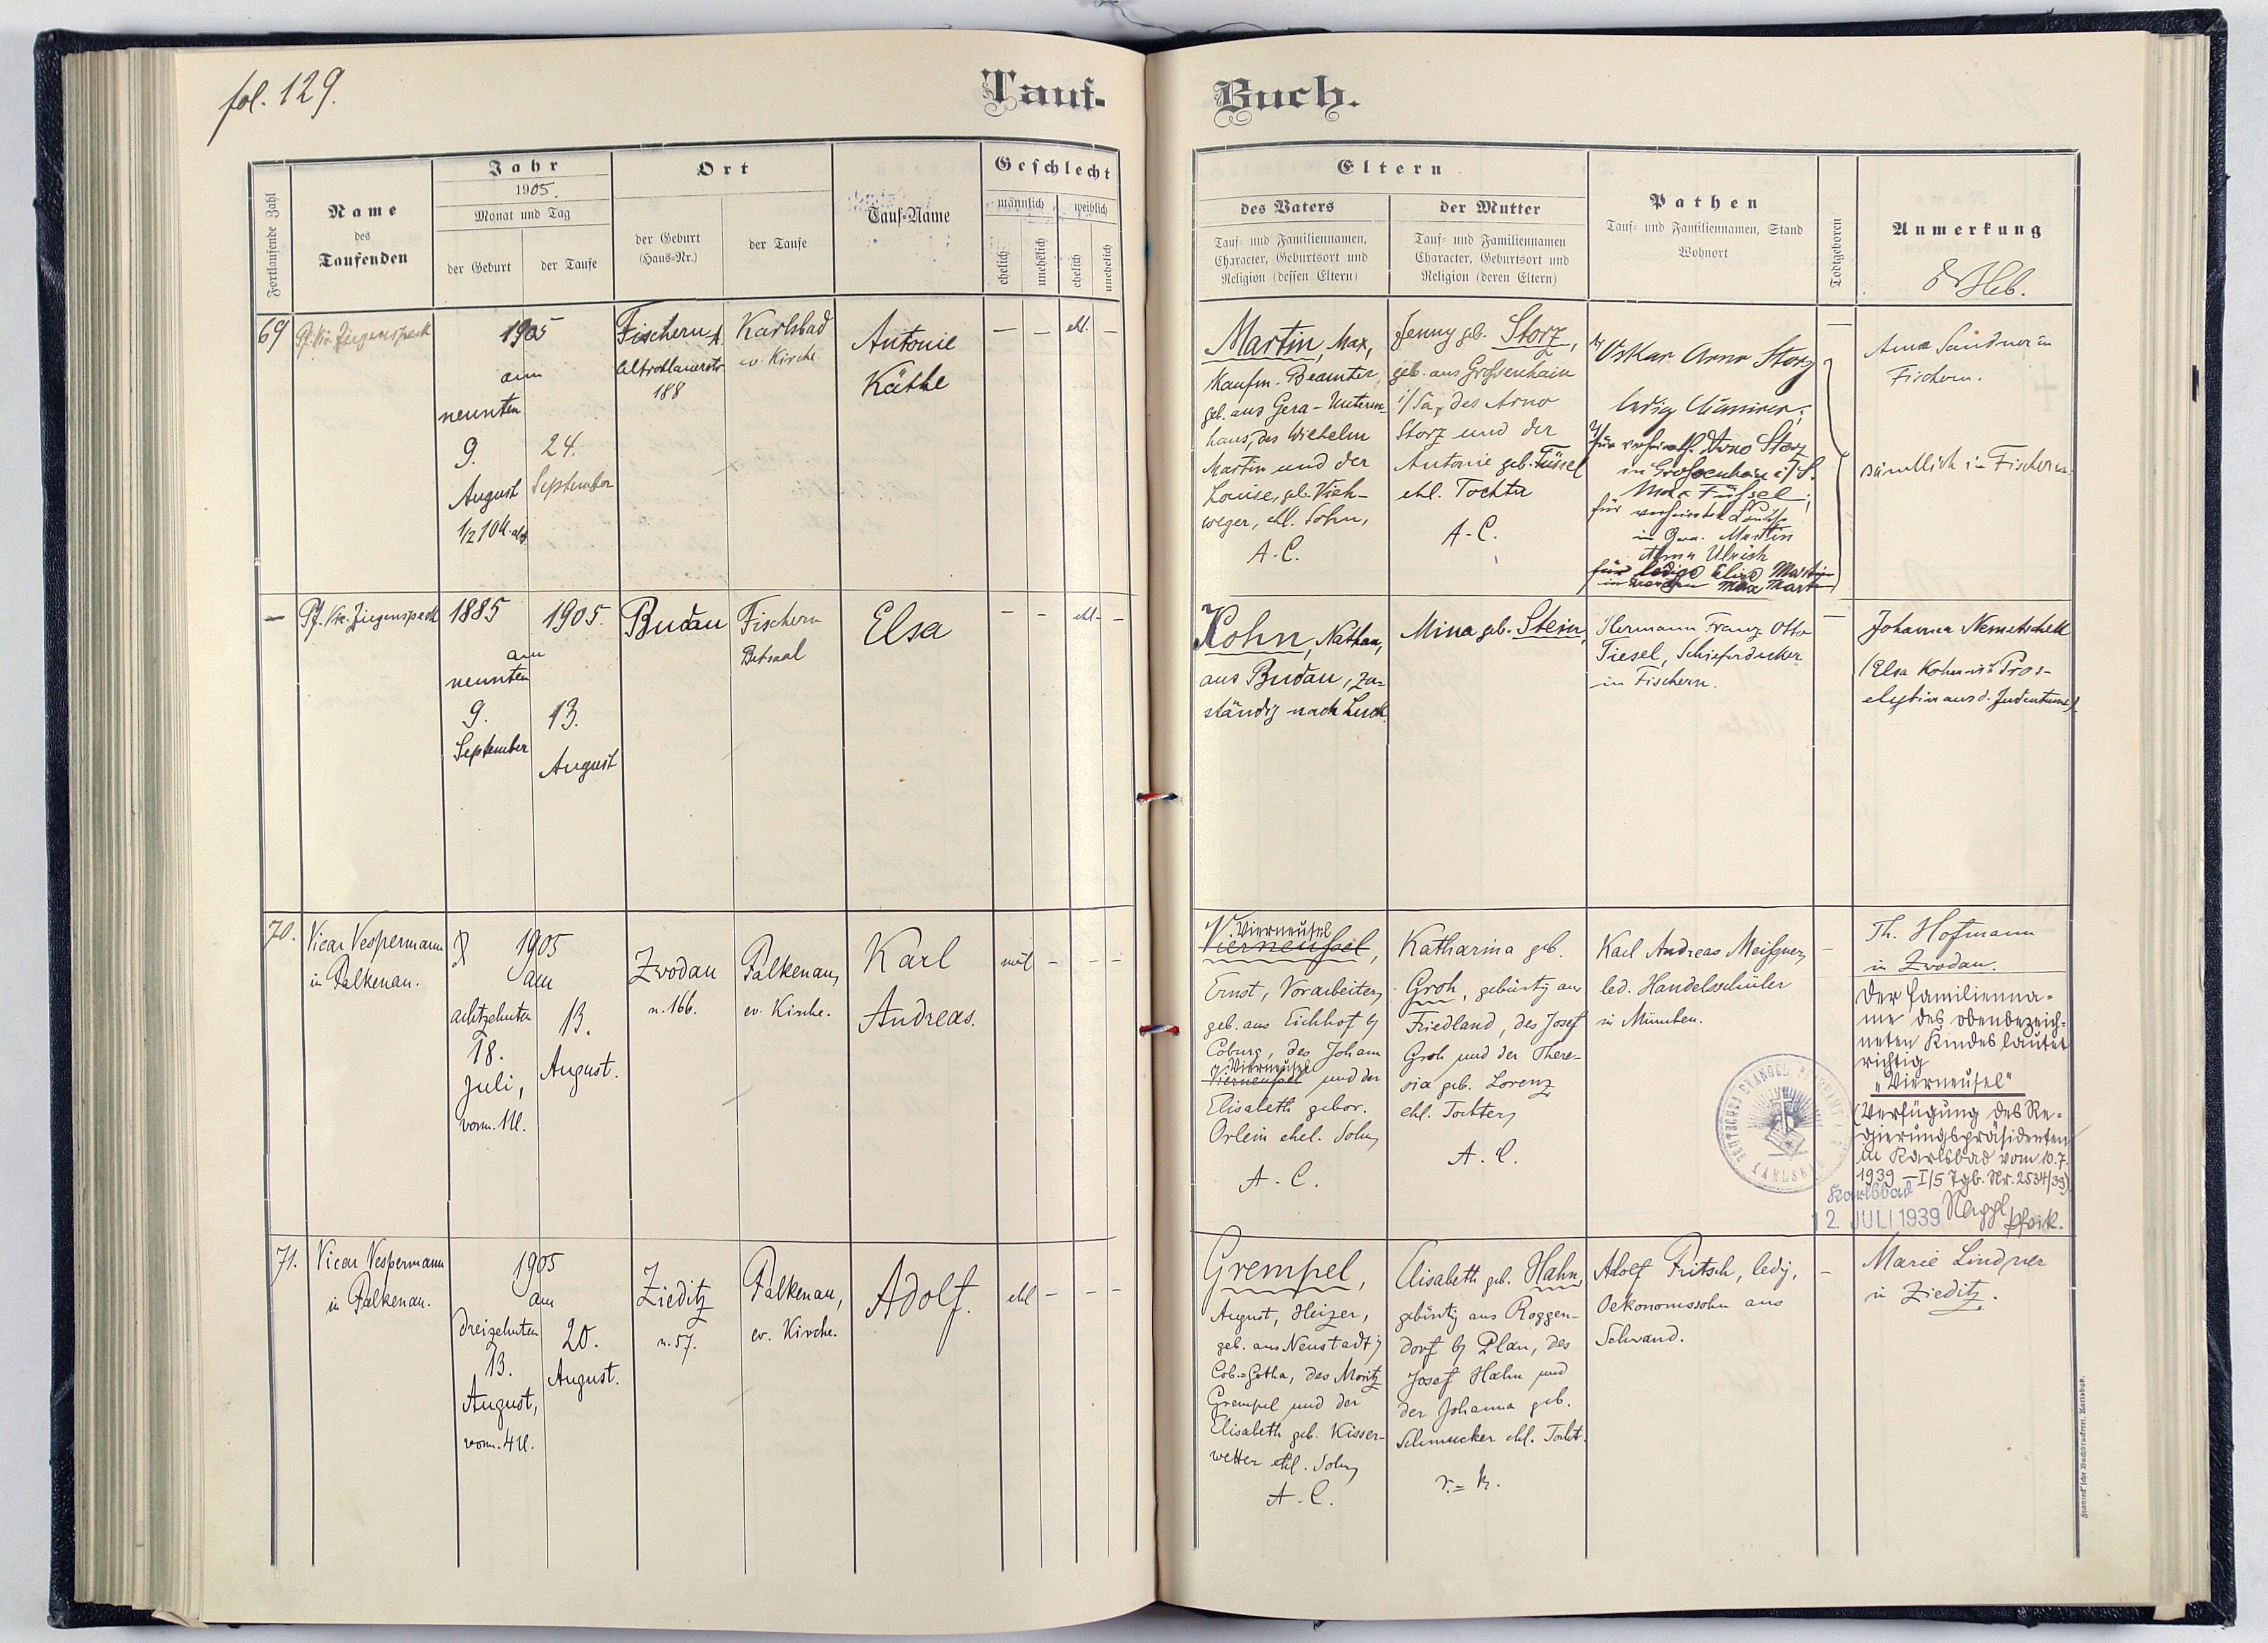 fol. 129.
Tauf-
Buch.
Fortlaufende Zahl
Name
des
Taufenden
Jahr
1905.
Monat und Tag
der Geburt
der Taufe
Ort
der Geburt
(Haus-Nr.)
der Taufe
Tauf-Name
Geschlecht
männlich
weiblich
ehelich
unehelich
ehelich
unehelich
Eltern
des Vaters
Tauf- und Familiennamen,
Character, Geburtsort und
Religion (dessen Eltern)
der Mutter
Tauf- und Familiennamen
Character, Geburtsort und
Religion (deren Eltern)
Pathen
Tauf- und Familiennamen, Stand
Wohnort
Todtgeboren
Anmerkung
Heb.
69
Pf. Vic. Ziegenspeck
1905
am
neunten
9.
August
1/2 10 U.
24.
September
Fischern
Altrohlauerstr.
188
Karlsbad
ev. Kirche
Antonie
Käthe
— — ehl. —
Martin, Max,
Kaufm. Beamter
geb. aus Gera-Unterm-
haus, des Wilhelm
Martin und der
Louise, geb. Vieh-
weger, ehl. Sohn,
A.C.
Jenny geb. Storz,
geb. aus Großenhain
i/Sa, des Arno
Storz und der
Antonie geb. Füssel
ehl. Tochter
A.C.
Oskar Arno Storz
ledig
für verheirath. Arno Storz
in Großenhain i/S.
Max Füssel;
für verheiratet Louise
in Gera. Martin
Alma Ulrich
für ledige Elise Martin
in Max Martin
—
Anna Sandner in
Fischern.
sämtlich in Fischern.
—
Pf. Vic. Ziegenspeck
1885
am
neunten
9.
September
1905.
13.
August
Budau
Fischern
Betsaal
Elsa
— — ehl. —
Kohn, Nathan,
aus Budau, zu-
ständig nach Luck.
Mina geb. Stein,
Hermann Franz Otto
Tiesel, Schieferdecker
in Fischern.
—
Johanna Nemetschek
(Elsa Kohn ist Pros-
elytin aus d. Judentume).
70.
Vicar Vespermann
in Falkenau.
1905
am
achtzehnten
18.
Juli,
vorm. 1 U.
13.
August.
Zwodau
n. 166.
Falkenau,
ev. Kirche.
Karl
Andreas.
— — —
V. Vierneusel
Vierneußel,
Ernst, Vorarbeiter,
geb. aus Eichhof b/
Coburg, des Johann
V. Vierneusel
Vierneußel und der
Elisabeth gebor.
Orlein ehel. Sohn,
A.C.
Katharina geb.
Groh, gebürtig aus
Friedland, des Josef
Groh und der There-
sia geb. Lorenz
ehl. Tochter,
A.C.
Karl Andreas Meißner,
led. Handelsschüler
in München.
—
Th. Hofmann
in Zwodau.
Der Familienna-
me des obenbezeich-
neten Kindes lautet
richtig
„Vierneusel"
(Verfügung des Re-
gierungspräsidenten
in Karlsbad vom 10.7.
1939 — I/5 Tgb. Nr. 2534/39)
Karlsbad
12. JULI 1939
71.
Vicar Vespermann
in Falkenau.
1905
am
dreizehnten
13.
August,
vorm. 4 U.
20.
August.
Zieditz
n. 57.
Falkenau,
ev. Kirche.
Adolf.
ehl — — —
Grempel,
August, Heizer,
geb. aus Neustadt i/
Cob.-Gotha, des Moritz
Grempel und der
Elisabeth geb. Kisser-
wetter ehl. Sohn,
A.C.
Elisabeth geb. Hahn,
gebürtig aus Roggen-
dorf b/ Plan, des
Josef Hahn und
der Johanna geb.
Schmucker ehl. Tocht.
r.-k.
Adolf Fritsch, ledig,
Oekonomssohn aus
Schwand.
—
Marie Lindner
in Zieditz.